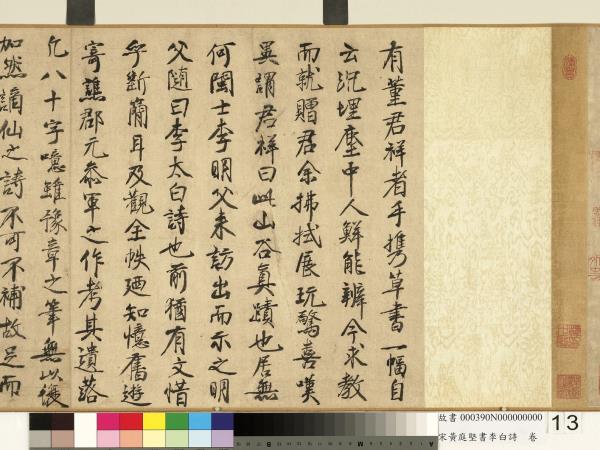 有董君祥者手携草書一幅自
云沉埋塵中人鮮能辨今求教
而就贈君余拂拭展玩驚喜嘆
異謂君祥曰此山谷真蹟也居無
何閩士李明父来訪出而示之明
父隨曰李太白詩也前猶有文惜
乎斷簡耳及觀全帙廼知憶舊遊
寄譙郡元叅軍之作考其遺落
凡八十字噫雖豫章之筆無以復
加然謫仙之詩不可不補故足而
故書 000390N000000000
宋黃庭堅書李白詩 卷
13